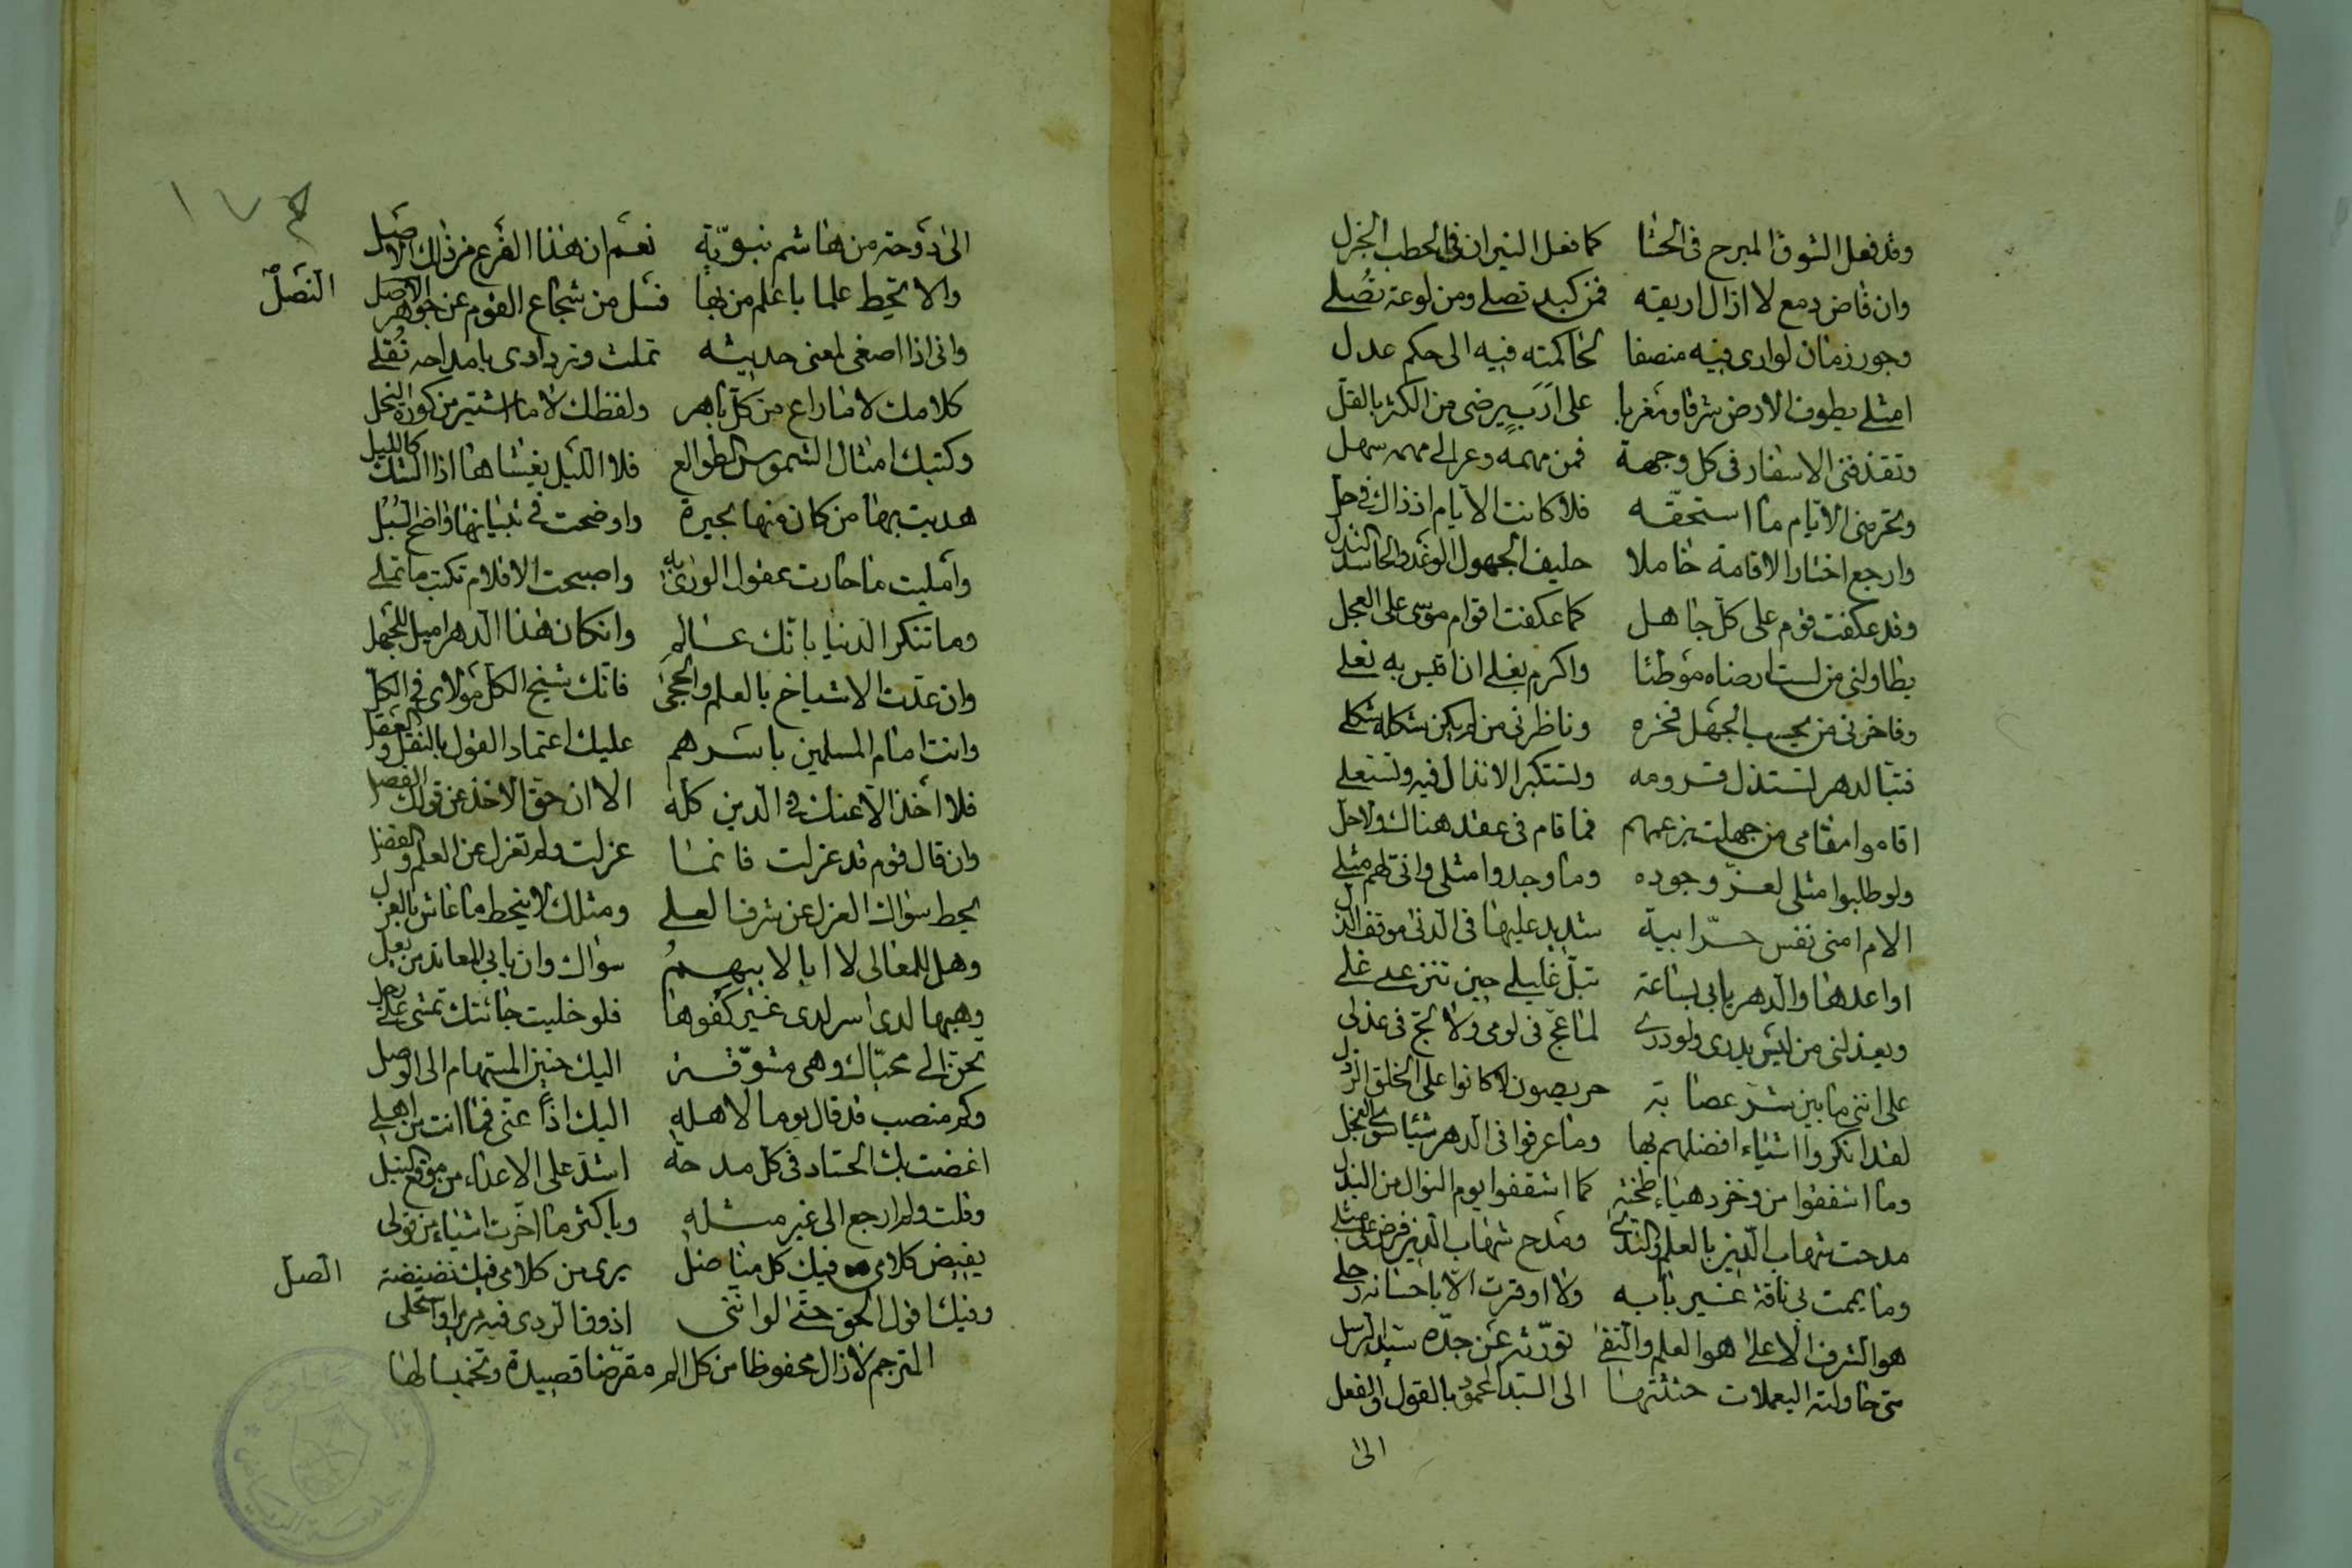 وقد فعل الشوق المبرح في الحشا كما فعل النيران في الحطب الجزل
وان فاض دمع لا ازال اريقه فمن كبد تصلى ومن لوعة تُصلي
وجور زمان لو ارى فيه منصفا لحاكمته فيه الى حكم عدل
امثلي يطوف الارض شرقا ومغربا على اَرَبٍ يرضى من الكثر بالقل
وتقذفني الاسفار في كل وجهة فمن مهمه وعر الى مهمه سهل
وتحرمني الايام ما استحقه فلا كانت الايام اذ ذاك في حل
وارجع اختار الاقامة خاملا حليف الجهول الوغد والحاسد النذل
وقد عكفت قوم على كل جاهل كما عكفت اقوام موسى على العجل
يطاولني من لست ارضاه موطئا واكرم نعلي ان اقيس به نعلي
وفاخرني من يحسب الجهل فخره وناظرني من لم يكن شكله شكلي
فتبا لدهر تستذل قرومه وتستكبر الانذال فيه وتستعلي
اقاموا مقامي من جهلت بزعمهم فما قام في عقد هناك ولا حل
ولو طلبوا مثلي لعزّ وجوده وما وجدوا مثلي وانى لهم مثلي
الام امني نفس حرّ ابية شديد عليها في الدنى موقف الذل
اواعدها والدهر يابى بساعة تبلّ غليلي حين تنزع لي غلي
ويعذلني من ليس يدري ولو درى لما عجّ في لومي ولا لجّ في عذلي
على انني ما بين شر عصابة حريصون لا كانوا على الخلق الرذل
لقد انكروا اشياء افضلهم بها وما عرفوا في الدهر شيئا سوى البخل
وما اشفقوا من وخز دهياء طخية كما اشفقوا يوم النوال من البذل
مدحت شهاب الدين بالعلم والندى ومدح شهاب الدين فرض على مثلي
وما يممت بي ناقة غير بابه ولا اوقرت الا باحسانه رحلي
هو الشرف الاعلى هو العلم والتقى تورّثه عن جدّه سيد الرسل
متى حاولته اليعملات حثثتها الى السيد المحمود بالقول والفعل
الى
١٧٣
الى دوحة من هاشم نبويّة نعم ان هذا الفرع من ذلك الاصل
والا تحط علما باعلم من بها فسل من شجاع القوم عن جوهر النصل
النصل
واني اذا اصغى لمعنى حديثه تملت وتزدادي بامداحه نُقلي
كلامك لا ما راع من كل باهر ولفظك لا ما اشتير من كورة النحل
وكتبك امثال الشموس طوالع فلا الليل يغشاها اذا الشك كالليل
هديت بها من كان منها بحيرة واوضحت في تبيانها واضح السُبُل
وامليت ما حارت عقول الورى به واصبحت الاقلام تكتب ما تملي
وما تنكر الدنيا بانك عالم وان كان هذا الدهر اميل للجهل
وان عدت الاشياخ بالعلم والحجى فانك شيخ الكل مولاي في الكل
وانت امام المسلمين باسرهم عليك اعتماد القول بالنقل والعقل
فلا اخذ الا عنك في الدين كله الا ان حق الاخذ عن قولك الفصل
وان قال قوم قد عزلت فانما عزلت ولم تعزل عن العلم والفضل
يحط سواك العزل عن شرف العلى ومثلك لا ينحط ما عاش بالعزل
وهل للمعالي لا ابا لابيهمُ سواك وان يابى المعاند من بعل
وهبها لدى اسر لدى غير كفوها فلو خليت جائتك تمشي على رجل
تحنّ الى محياك وهي مشوّقة اليك حنين المستهام الى الوصل
وكم منصب قد قال يوما لاهله اليك اذاً عنّي فما انت من اهلي
اغضت بك الحساد في كل مدحة اشدّ على الاعداء من موقع النبل
وقلت ولم ارجع الى غير مثله ويا كثر ما اخّرت اشياء من قولي
يغيض كلامي فيك كل مناضل يرى من كلامي فيك نضنضة الصل
وفيك اقول الحق حتى لو انني اذوق الردى فيه مريرا واستحلي
المترجم لا زال محفوظا من كل الم مقرضا قصيدة وتخميسا لها